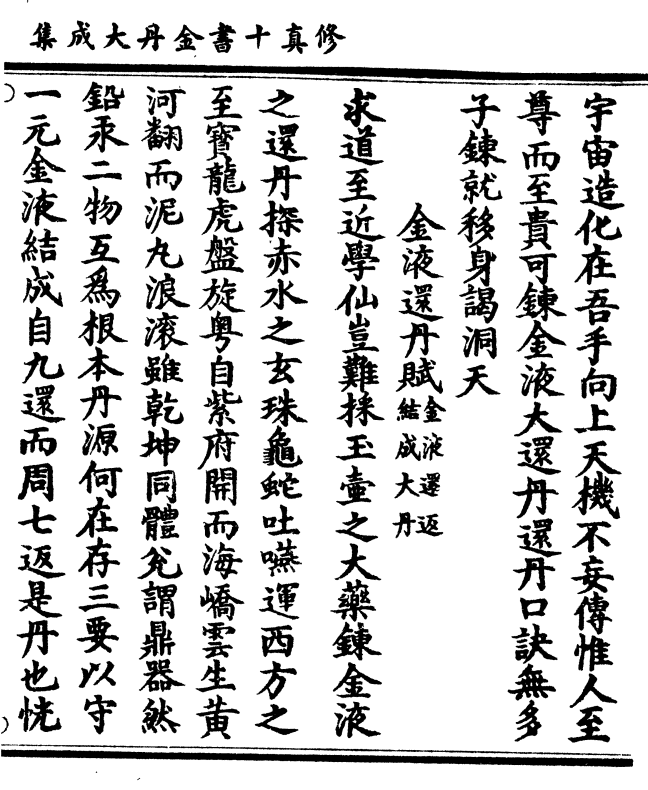 修真十書金丹大成集
宇宙造化在吾手向上天機不妄傳惟人至
尊而至貴可鍊金液大還丹還丹口訣無多
子鍊就移身謁洞天
金液還丹賦金液還返結成大丹
求道至近學仙豈難採玉壺之大藥鍊金液
之還丹探赤水之玄珠龜蛇吐嚥運西方之
至寶龍虎盤旋粵自紫府開而海嶠雲生黃
河翻而泥丸浪滾雖乾坤同體兊謂鼎器然
鉛汞二物互爲根本丹源何在存三要以守
一元金液結成自九還而周七返是丹也恍